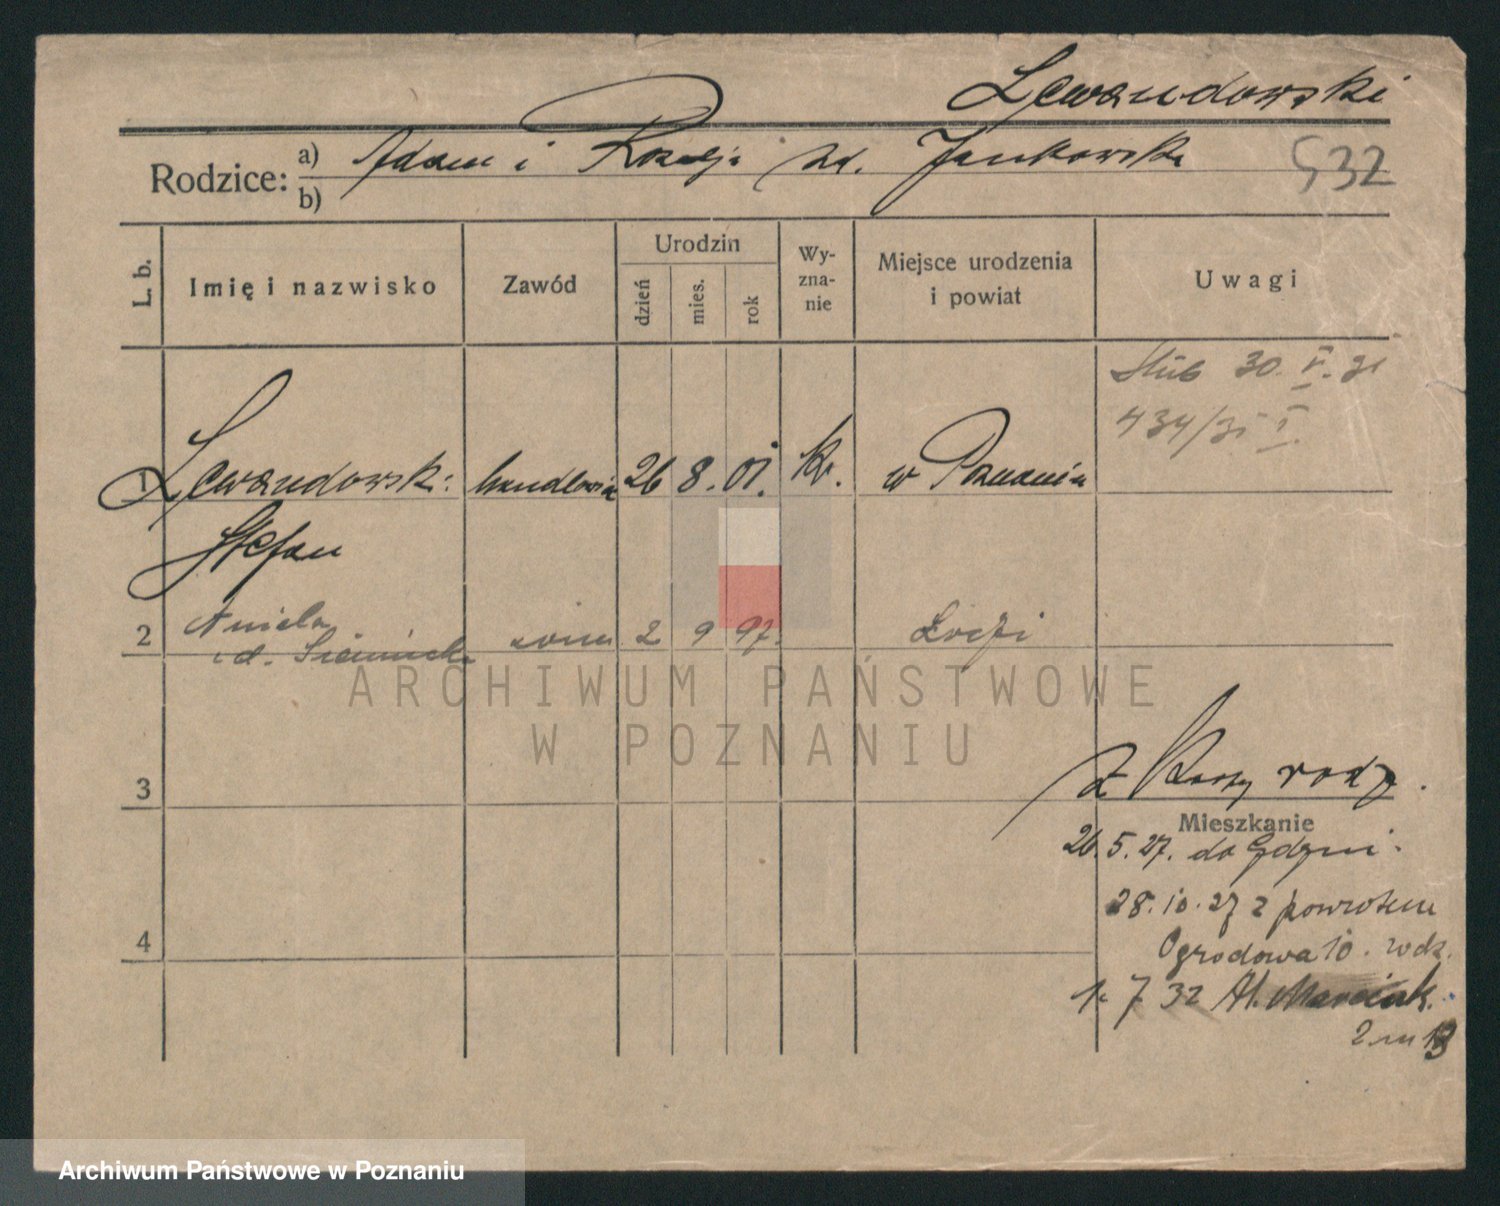 Lewandowski
Rodzice: a) Adam i Rozalja zd. Jankowska
b)
532
L. b.
Imię i nazwisko
Zawód
Urodzin
dzień
mies.
rok
Wy-
zna-
nie
Miejsce urodzenia
i powiat
Uwagi
ślub 30. V. 31
434/31 I.
1 Lewandowski handlowiec 26 8. 01. kr. w Poznaniu
Stefan
Aniela
2 żona 2 9 97. Łodzi
ARCHIWUM PAŃSTWOWE
W POZNANIU
z Karty rodz.
3
Mieszkanie
26. 5. 27. do Gdyni.
28. 10. 27 z powrotem
Ogrodowa 10. rodz.
4
1. 7 32 Al. Marcink.
2 m 13
Archiwum Państwowe w Poznaniu